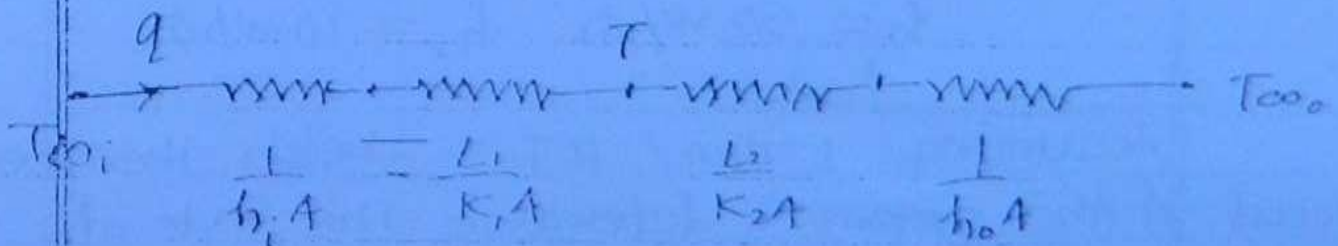 q T
T∞i T∞o
1/h₁A L₁/K₁A L₂/K₂A 1/h₀A